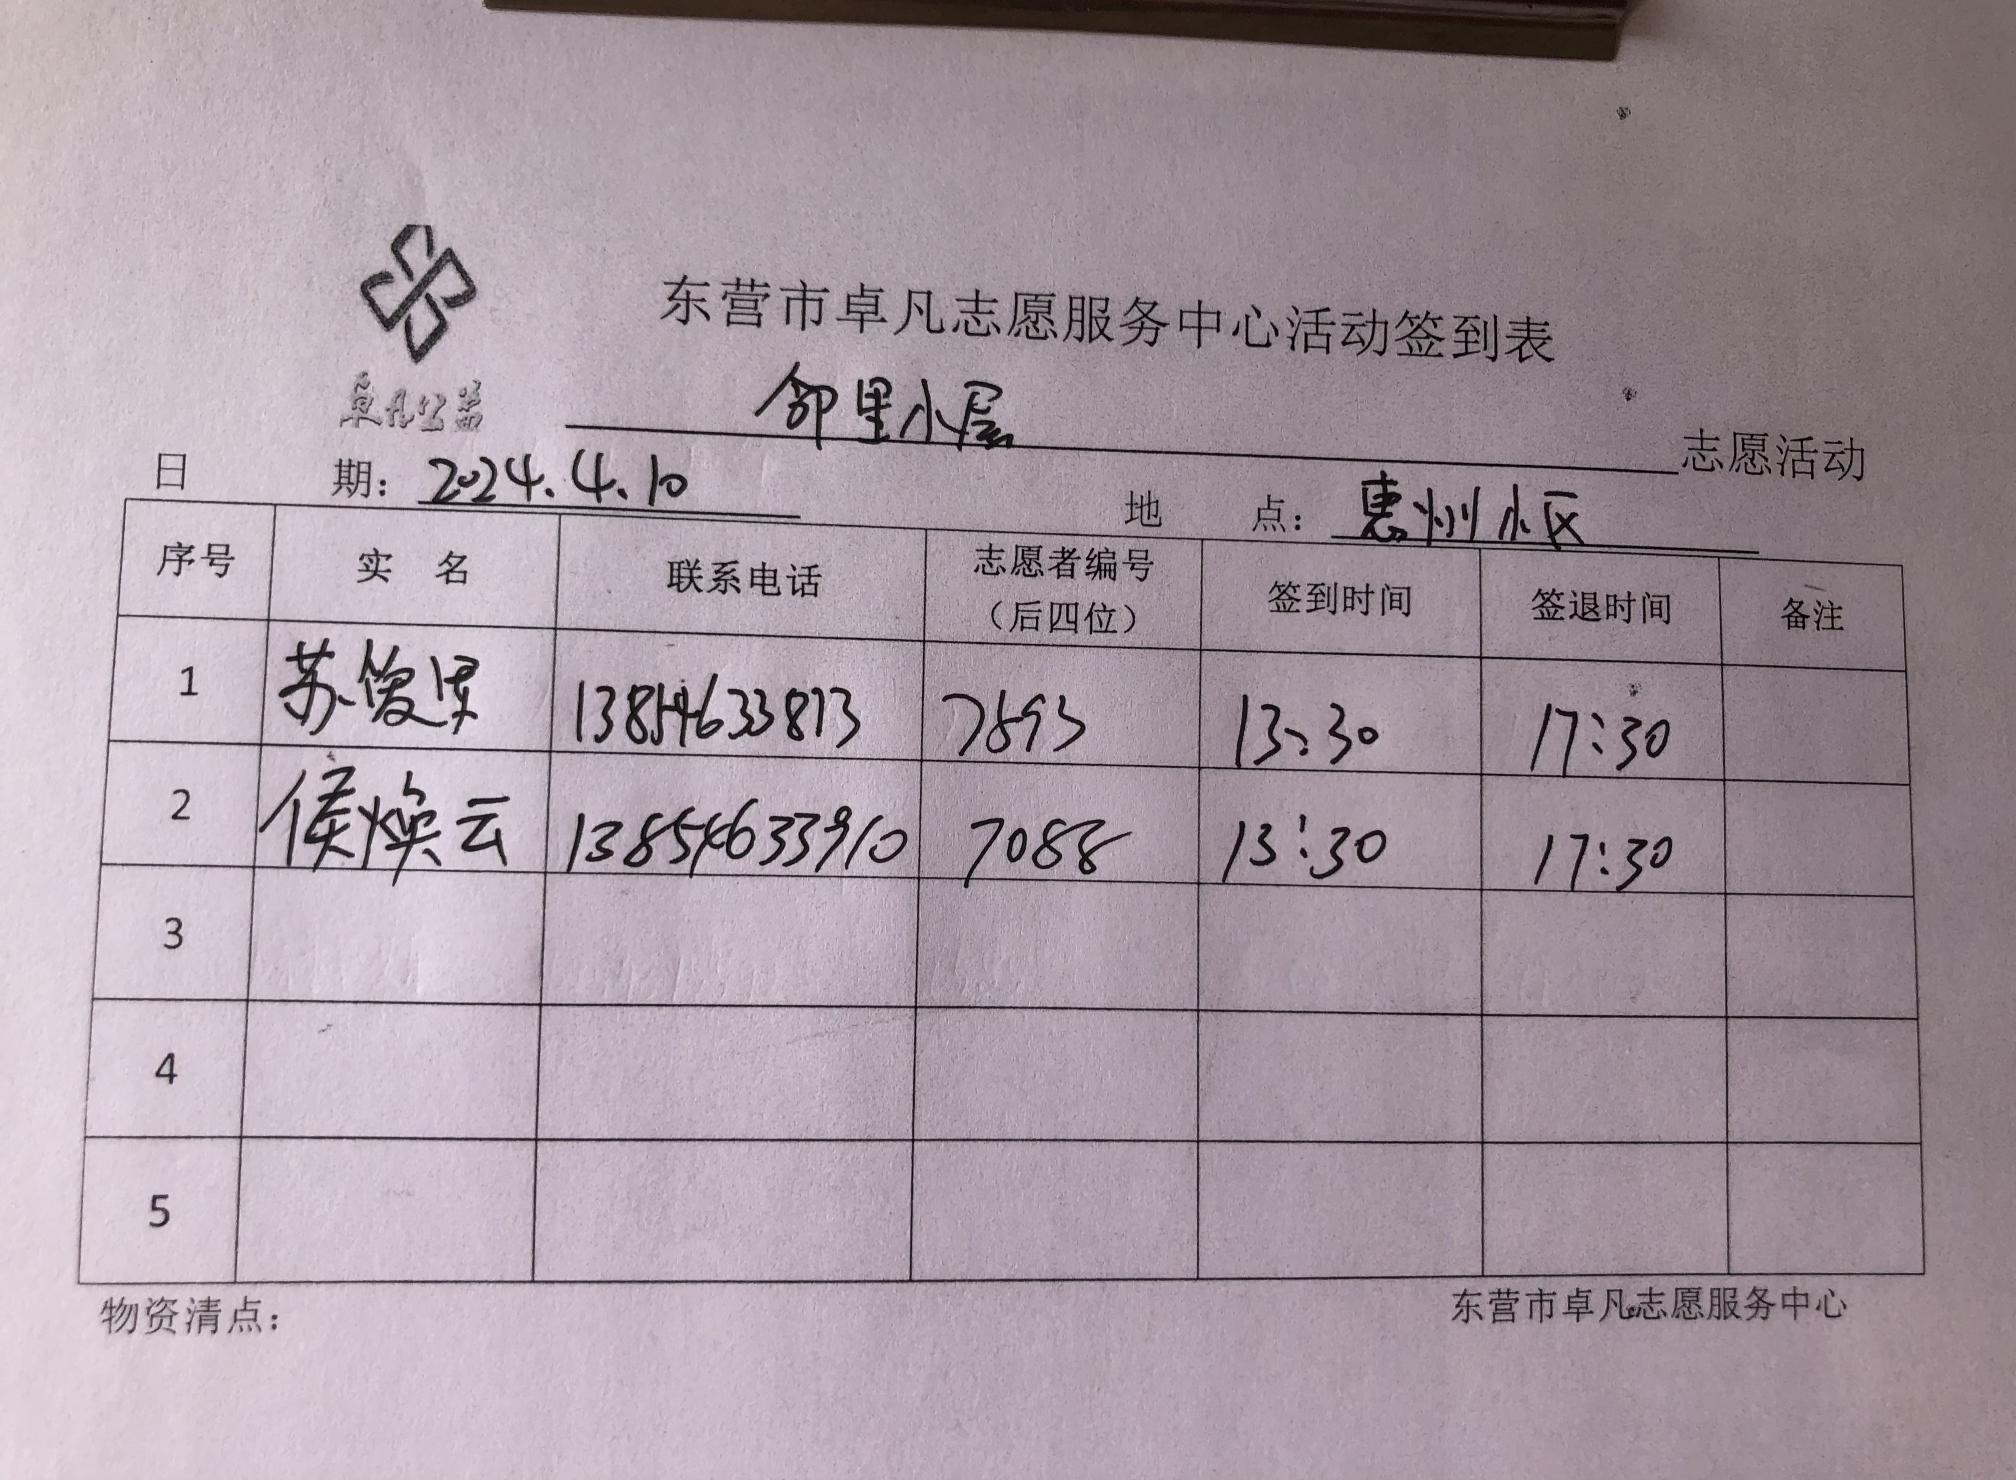 东营市卓凡志愿服务中心活动签到表
卓凡公益
邻里小屋 志愿活动
日 期：2024.4.10 地 点：惠州小区
序号 实 名 联系电话 志愿者编号（后四位） 签到时间 签退时间 备注
1 苏俊 13854633813 7593 13:30 17:30
2 侯焕云 13854633910 7088 13:30 17:30
3
4
5
物资清点： 东营市卓凡志愿服务中心